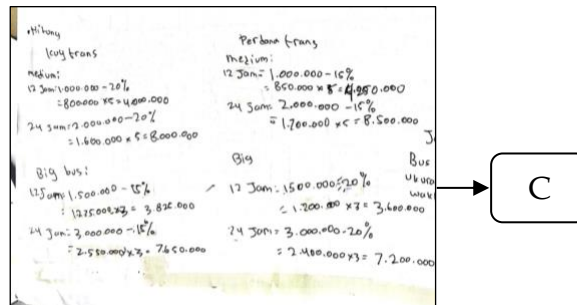 •Hitung
Icuy trans
medium:
12 Jam: 1.000.000 - 20%
= 800.000 x 5 = 4.000.000
24 Jam = 2.000.000 - 20%
= 1.600.000 x 5 = 8.000.000
Big bus:
12 Jam: 1.500.000 - 15%
= 1.275.000 x 3 = 3.825.000
24 Jam: 3.000.000 - 15%
= 2.550.000 x 3 = 7.650.000
Perdana trans
medium:
12 Jam = 1.000.000 - 15%
= 850.000 x 5 = 4.250.000
24 Jam = 2.000.000 - 15%
= 1.700.000 x 5 = 8.500.000
Big
12 Jam = 1.500.000 - 20%
= 1.200.000 x 3 = 3.600.000
24 Jam = 3.000.000 - 20%
= 2.400.000 x 3 = 7.200.000
J
Bus
C